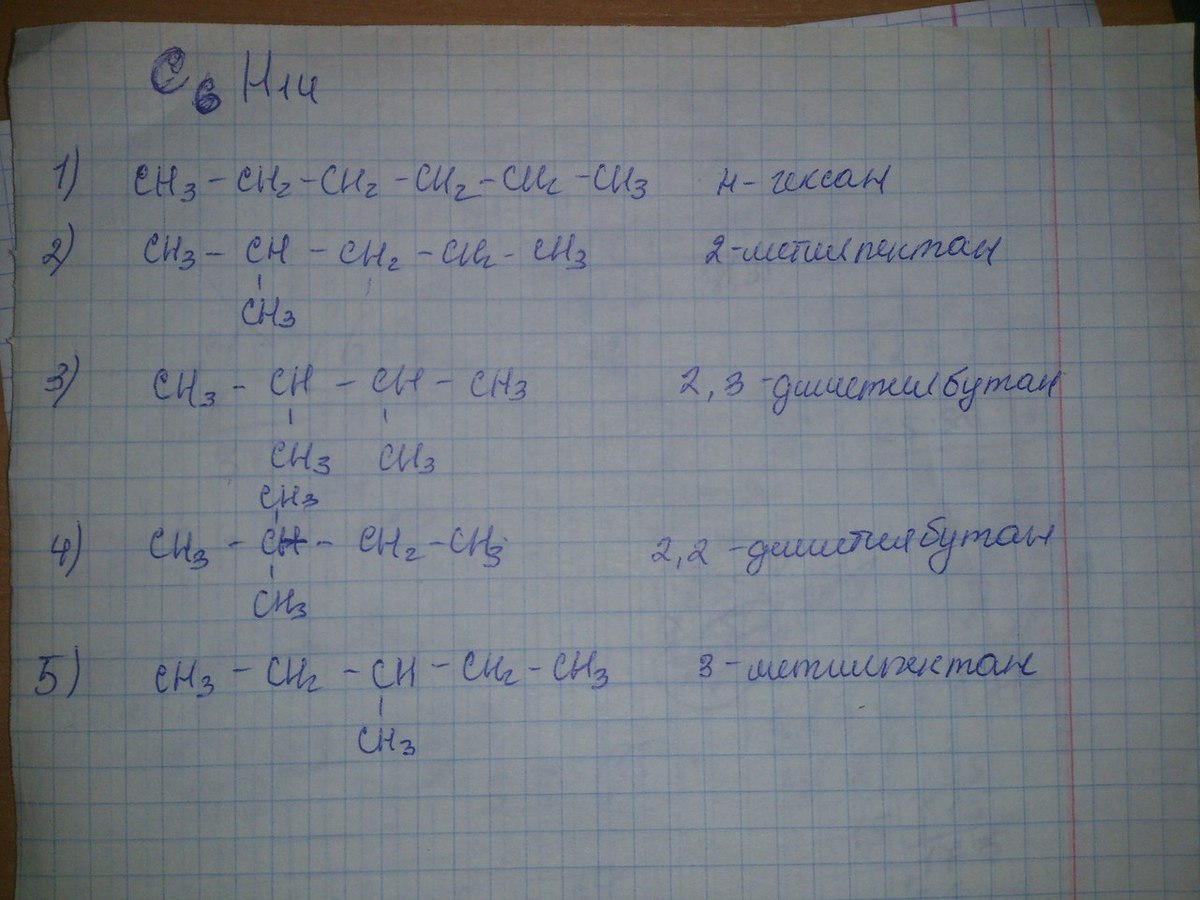 C6 H14
1) CH3 - CH2 - CH2 - CH2 - CH2 - CH3 н-гексан
2) CH3 - CH - CH2 - CH2 - CH3 2-метилпентан
CH3
3) CH3 - CH - CH - CH3 2,3-диметилбутан
CH3 CH3
CH3
4) CH3 - C - CH2 - CH3 2,2-диметилбутан
CH3
5) CH3 - CH2 - CH - CH2 - CH3 3-метилпентан
CH3